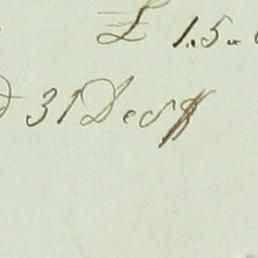 £ 1.5.
d 31 Decr